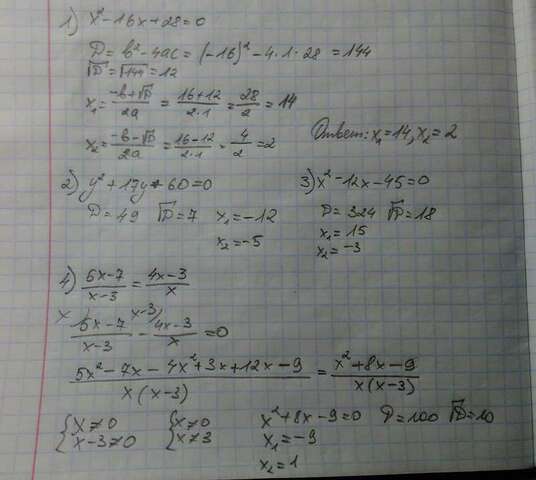 1) x²-16x+28=0
D=в²-4ac=(-16)²-4·1·28=144
√D=√144=12
x₁=(-в+√D)/2a=(16+12)/(2·1)=28/2=14
x₂=(-в-√D)/2a=(16-12)/(2·1)=4/2=2
Ответ: x₁=14, x₂=2
2) y²+17y+60=0
D=49 √D=7 x₁=-12
x₂=-5
3) x²-12x-45=0
D=324 √D=18
x₁=15
x₂=-3
4) (5x-7)/(x-3)=(4x-3)/x
x) (5x-7)/(x-3) - x-3) (4x-3)/x=0
(5x²-7x-4x²+3x+12x-9)/(x(x-3))=(x²+8x-9)/(x(x-3))
{x≠0 {x≠0 x²+8x-9=0 D=100 √D=10
{x-3≠0 {x≠3 x₁=-9
x₂=1